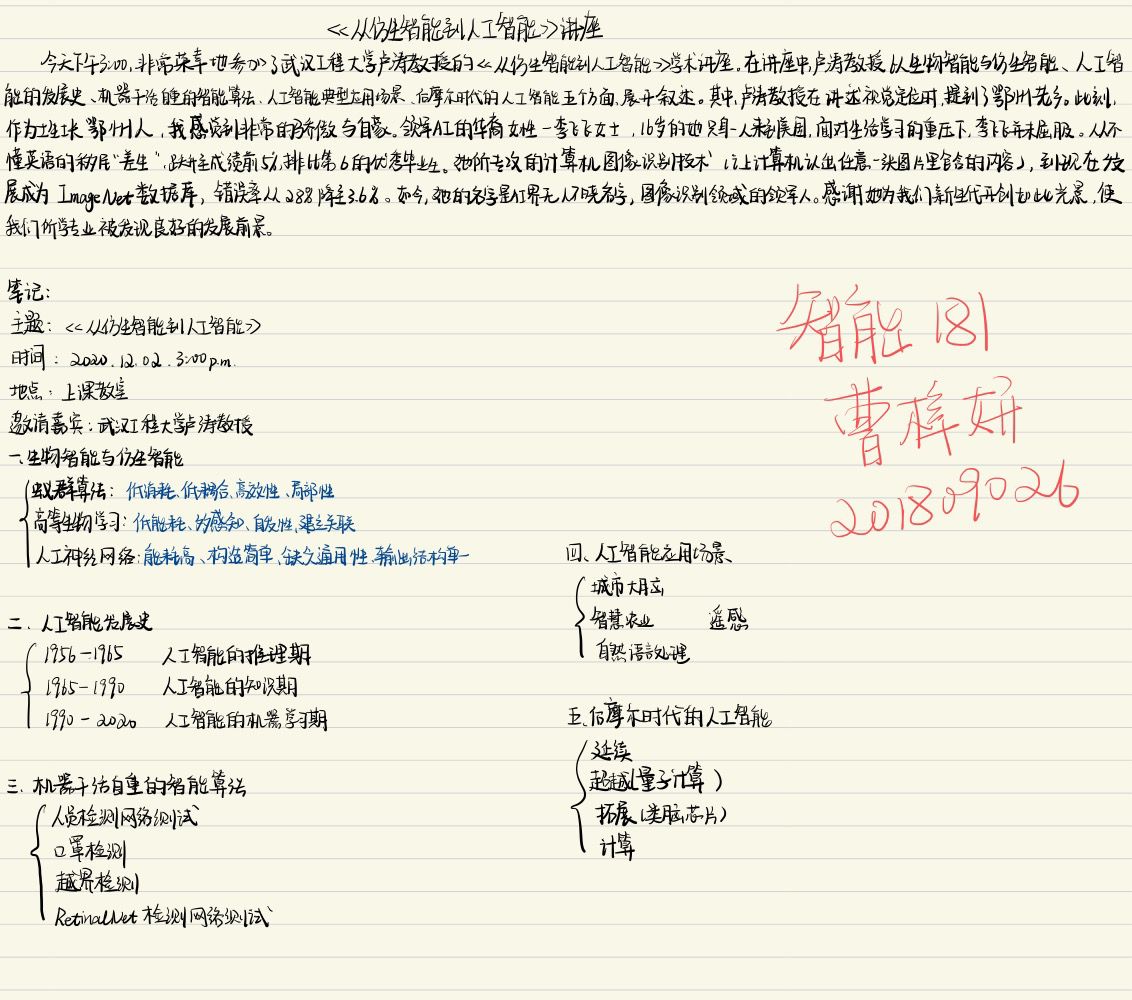 <<从仿生智能到人工智能>>讲座
今天下午3:00,非常荣幸地参加了武汉工程大学卢涛教授的<<从仿生智能到人工智能>>学术讲座。在讲座中,卢涛教授从生物智能与仿生智能、人工智
能的发展史、机器学习的智能算法、人工智能典型应用场景、后摩尔时代的人工智能五个方面,展开叙述。其中,卢涛教授在讲述视觉定位时,提到了鄂州老乡。此刻,
作为土生土长鄂州人,我感觉到非常的骄傲与自豪。领军AI的华裔女性-李飞飞女士,16岁的她只身一人来到美国,面对生活学习的重压下,李飞飞并未屈服。从不
懂英语的移民"差生",跃升至成绩前5%,排比第6的优秀毕业生。她所专攻的计算机图像识别技术(让计算机认出任意一张图片里包含的内容),到现在发
展成为ImageNet数据库,错误率从28%降至3.6%。如今,她的名字是IT界无人不晓名字,图像识别领域的领军人。感谢她为我们新生代开创如此光景,使
我们所学专业被发现良好的发展前景。
笔记:
主题:<<从仿生智能到人工智能>>
时间:2020.12.02.3:00p.m.
地点:上课教室
邀请嘉宾:武汉工程大学卢涛教授
一.生物智能与仿生智能
蚁群算法:低消耗、低耦合、高效性、局部性
高等生物学习:低能耗、弱感知、自发性、建立关联
人工神经网络:能耗高、构造简单、缺乏通用性、输出结构单一
二.人工智能发展史
1956-1965 人工智能的推理期
1965-1990 人工智能的知识期
1990-2020 人工智能的机器学习期
三.机器学习的智能算法
人员检测网络测试
口罩检测
越界检测
RetinalNet检测网络测试
智能181
曹梓妍
201809026
四.人工智能应用场景
城市大脑
智慧农业 遥感
自然语言处理
五.后摩尔时代的人工智能
延续
超越(量子计算)
拓展(类脑芯片)
计算